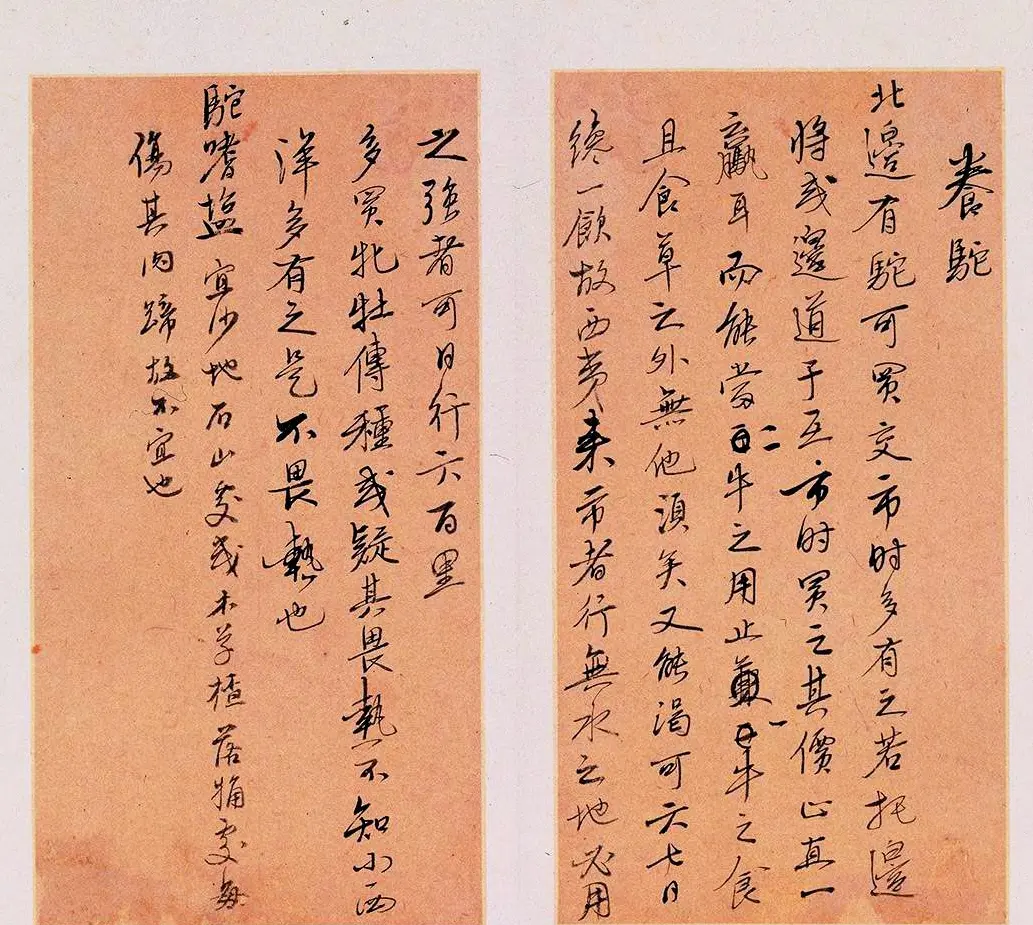 養駝
北邊有駝可買交市时多有之若托邊
將或邊道于互市时買之其價止直一
驘耳而能當二牛之用止兼一牛之食
且食草之外無他湏矣又能渴可六七日
纔一飲故西夷来市者行無水之地必用
之强者可日行六百里
多買牝牡傳種或疑其畏熱不知小西
洋多有之是不畏熱也
駝嗜塩宜沙地石山處或木學楂落捅處每
傷其肉蹄故不宜也